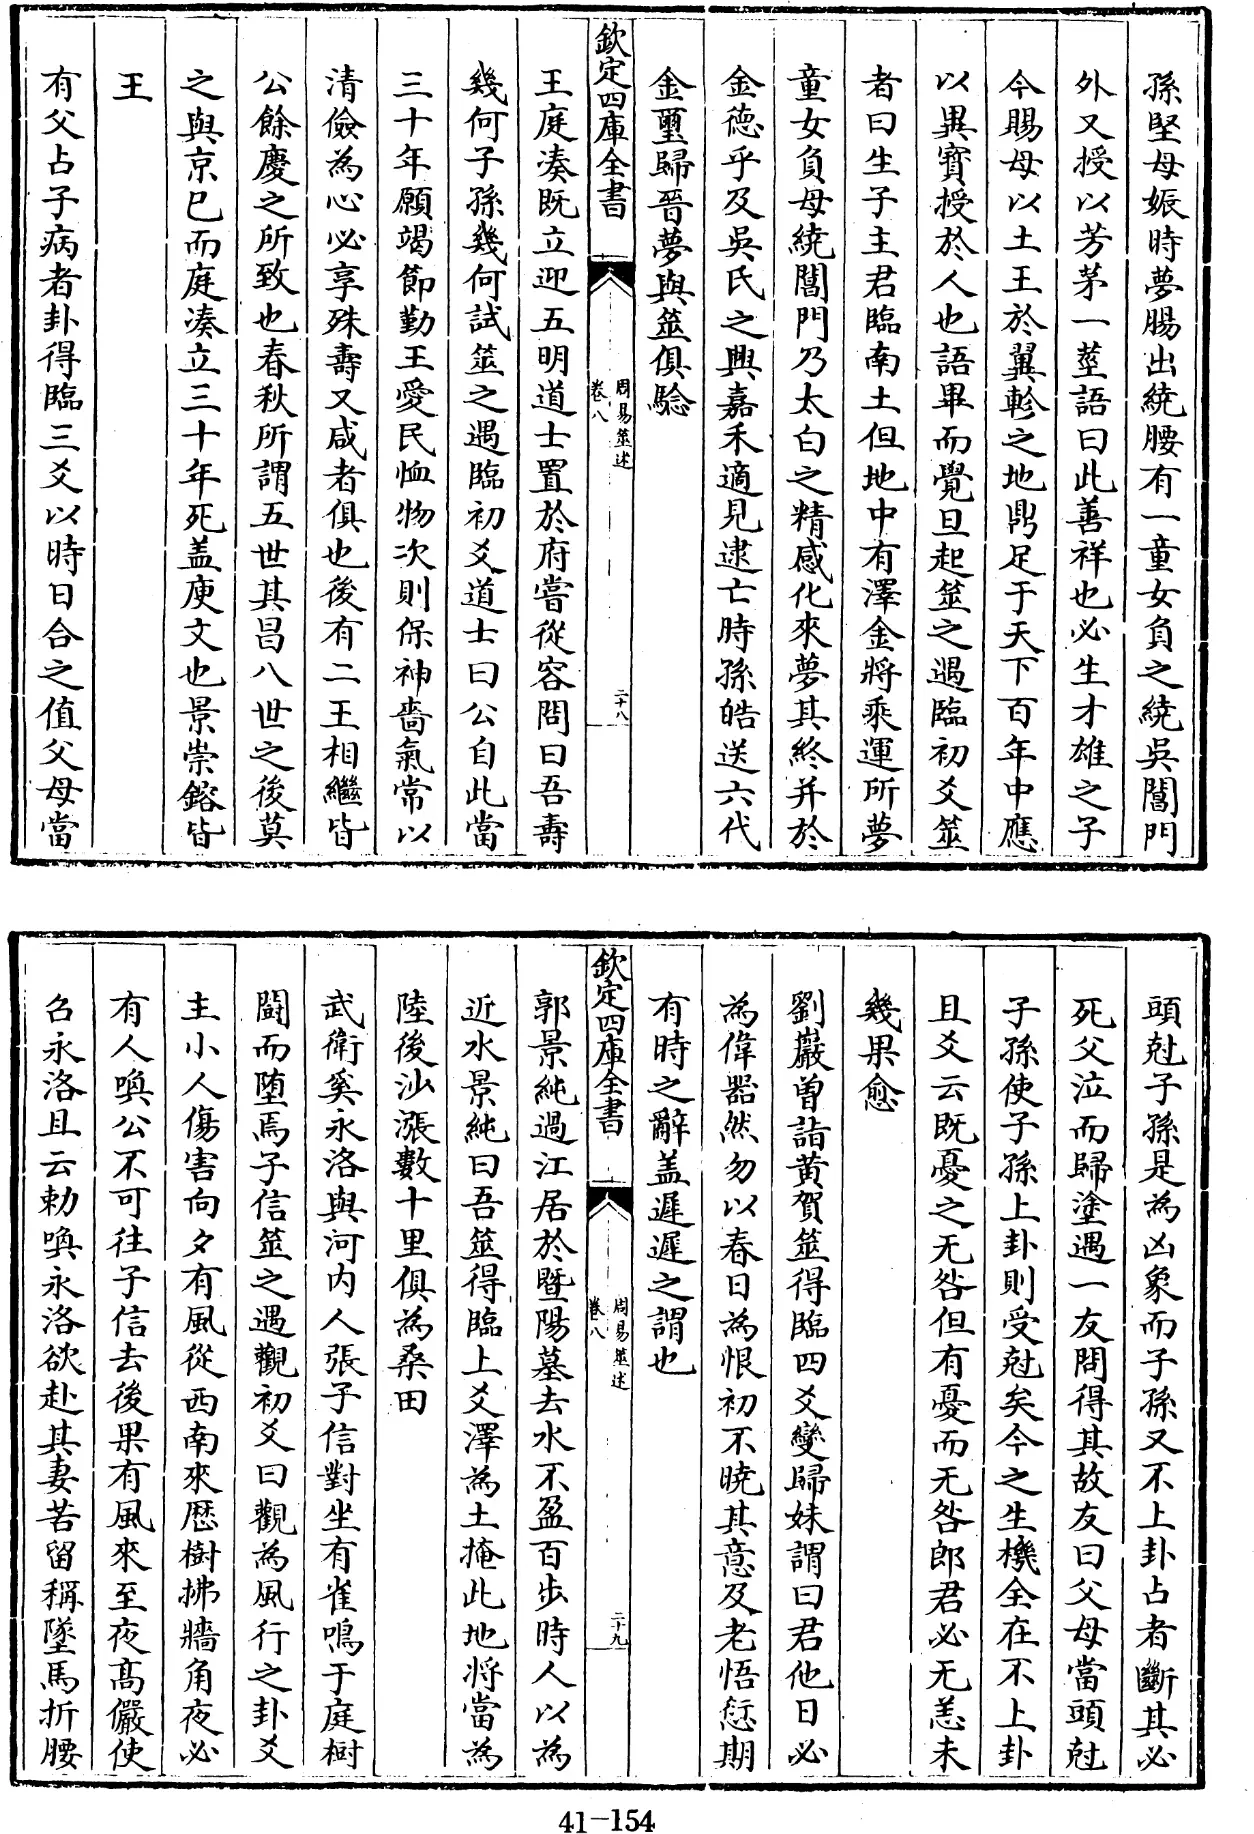 孫堅母娠時夢腸出繞腰有一童女負之繞吳閶門
外又授以芳茅一莖語曰此善祥也必生才雄之子
今賜母以土王於翼軫之地鼎足于天下百年中應
以異寳授於人也語畢而覺旦起筮之遇臨初爻筮
者曰生子主君臨南土但地中有澤金將乘運所夢
童女負母繞閶門乃太白之精感化來夢其終并於
金徳乎及吳氏之興嘉禾適見逮亡時孫皓送六代
金璽歸晉夢與筮俱騐
欽定四庫全書
周易筮述
卷八
二十八
王庭湊既立迎五明道士置於府嘗從容問曰吾壽
幾何子孫幾何試筮之遇臨初爻道士曰公自此當
三十年願竭節勤王愛民恤物次則保神嗇氣常以
清儉為心必享殊壽又咸者俱也後有二王相繼皆
公餘慶之所致也春秋所謂五世其昌八世之後莫
之與京巳而庭湊立三十年死盖庚文也景崇鎔皆
王
有父占子病者卦得臨三爻以時日合之值父母當
頭尅子孫是為凶象而子孫又不上卦占者斷其必
死父泣而歸塗遇一友問得其故友曰父母當頭尅
子孫使子孫上卦則受尅矣今之生機全在不上卦
且爻云既憂之无咎但有憂而无咎郎君必无恙未
幾果愈
劉巖曽詣黄賀筮得臨四爻變歸妹謂曰君他日必
為偉器然勿以春日為恨初不曉其意及老悟愆期
有時之辭盖遲遲之謂也
欽定四庫全書
周易筮述
卷八
二十九
郭景純過江居於暨陽墓去水不盈百步時人以為
近水景純曰吾筮得臨上爻澤為土掩此地将當為
陸後沙漲數十里俱為桑田
武衛奚永洛與河内人張子信對坐有雀鳴于庭樹
鬪而堕焉子信筮之遇觀初爻曰觀為風行之卦爻
主小人傷害向夕有風從西南來歴樹拂牆角夜必
有人喚公不可往子信去後果有風來至夜髙儼使
召永洛且云勅喚永洛欲赴其妻苦留稱墜馬折腰
41-154